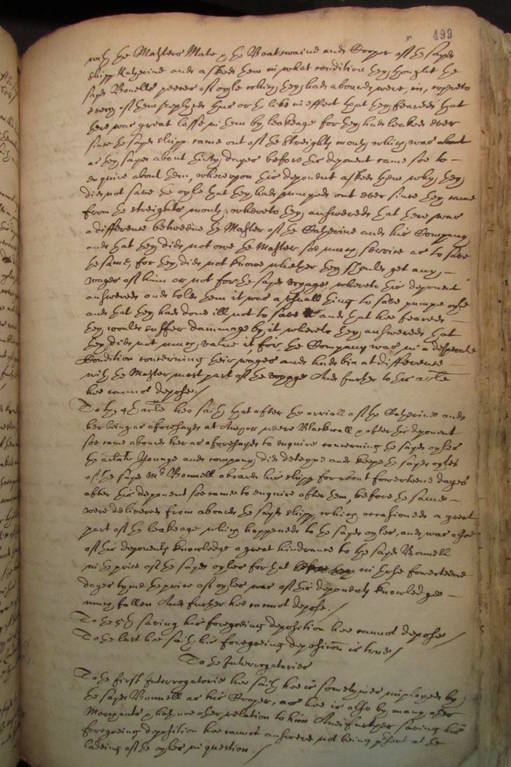 499
with the Masters Mate, the Boatswaine and Cooper of the sayd
shipp Katherine and asked them in what condition they thought the
sayd Bonells peeces of oyle which they had aboard were in, whereto
every of them replyed that or the like in effect that they feared that
there was great losse in them by leakage for they had leaked ever
since the sayd shipp came out of the Streights mouth which was about
as they sayd about thirty dayes before this deponent came soe to
enquire about them, whereupon this deponent asked them why they
did not save the oyle that they had pumped out ever since they came
from the streights mouth, whereto they answered that there was
a difference betweene the Master of the Catherine and his Company
and that they did not owe the Master soe much service as to save
the same, for they did not knowe whether they should get any
wages of him or not for the sayd voyage, whereto this deponent
answered and told them it was a small thing to save pumpe oyle
and that they had done ill not to save it and that hee feared
they would suffer dammage by it whereto they answered that
they did not much value it for the Company was in a desperate
Condition concerning their wages and had bin at difference
with the Master most part of the voyage And further to this article
hee cannot depose
To the 4th article hee saith that after the arrivall of the Catherine and
her being as aforesayd at Anchor neere Blackwall & after this deponent
soe came aboard her as aforesayd to enquire concerning the sayd oyles
the arlate Younge and company did deteyne and keepe the sayd oyles
of the sayd Mr Bonnell aboard his shipp for about fowerteene dayes
after this deponent soe came to enquire after them, before the same
were delivered from aboard the sayd shipp, which occasioned a great
part of the leakage which happened to the sayd oyles, and was alsoe
of this deponents knowledge a great hindrance to the sayd Bonnell
in the price of the sayd oyles for that in those fowerteene
dayes tyme the price of oyles was of this deponents knowledge
much fallen And further hee cannot depose.
To the 5th saving his foregoeing deposition hee cannot depose
To the last hee saith his foregoeing deposition is true
To the Interrogatories
To the first Interrogatorie hee saith hee is sometymes imployed by
the sayd Bonnell as his Cooper, as hee is alsoe by many other
Merchants & hath noe other relation to him And further saving his
foregoeing deposition hee cannot answere not being present at the
ladeing of the oyles in question